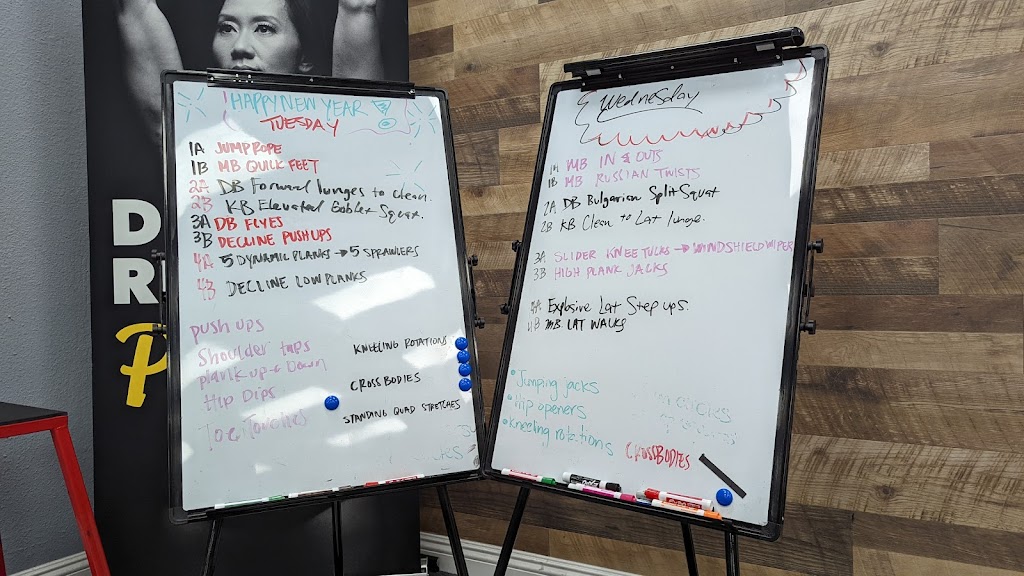 D
R
P
HAPPY NEW YEAR
TUESDAY
1A JUMP ROPE
1B MB QUICK FEET
2A DB Forward lunges to clean.
2B KB Elevated Goblet Squat.
3A DB FLYES
3B DECLINE PUSHUPS
4A 5 DYNAMIC PLANKS → 5 SPRAWLERS
4B DECLINE LOW PLANKS
PUSH UPS
Shoulder taps
Plank up & Down
Hip Dips
Toe Touches
KNEELING ROTATIONS
CROSSBODIES
STANDING QUAD STRETCHES
Wednesday
1A MB IN & OUTS
1B MB RUSSIAN TWISTS
2A DB Bulgarian Split Squat
2B KB Clean to Lat lunge.
3A SLIDER KNEE TUCKS → WINDSHIELD WIPER
3B HIGH PLANK JACKS
4A Explosive Lat Step ups.
4B MB LAT WALKS
• Jumping jacks
• Hip openers
• Kneeling rotations
CROSSBODIES